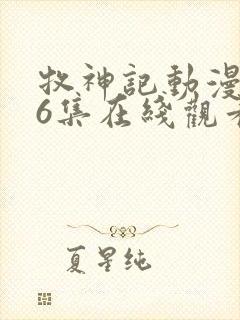 牧神記動漫
6集在綫觀看
夏星纯